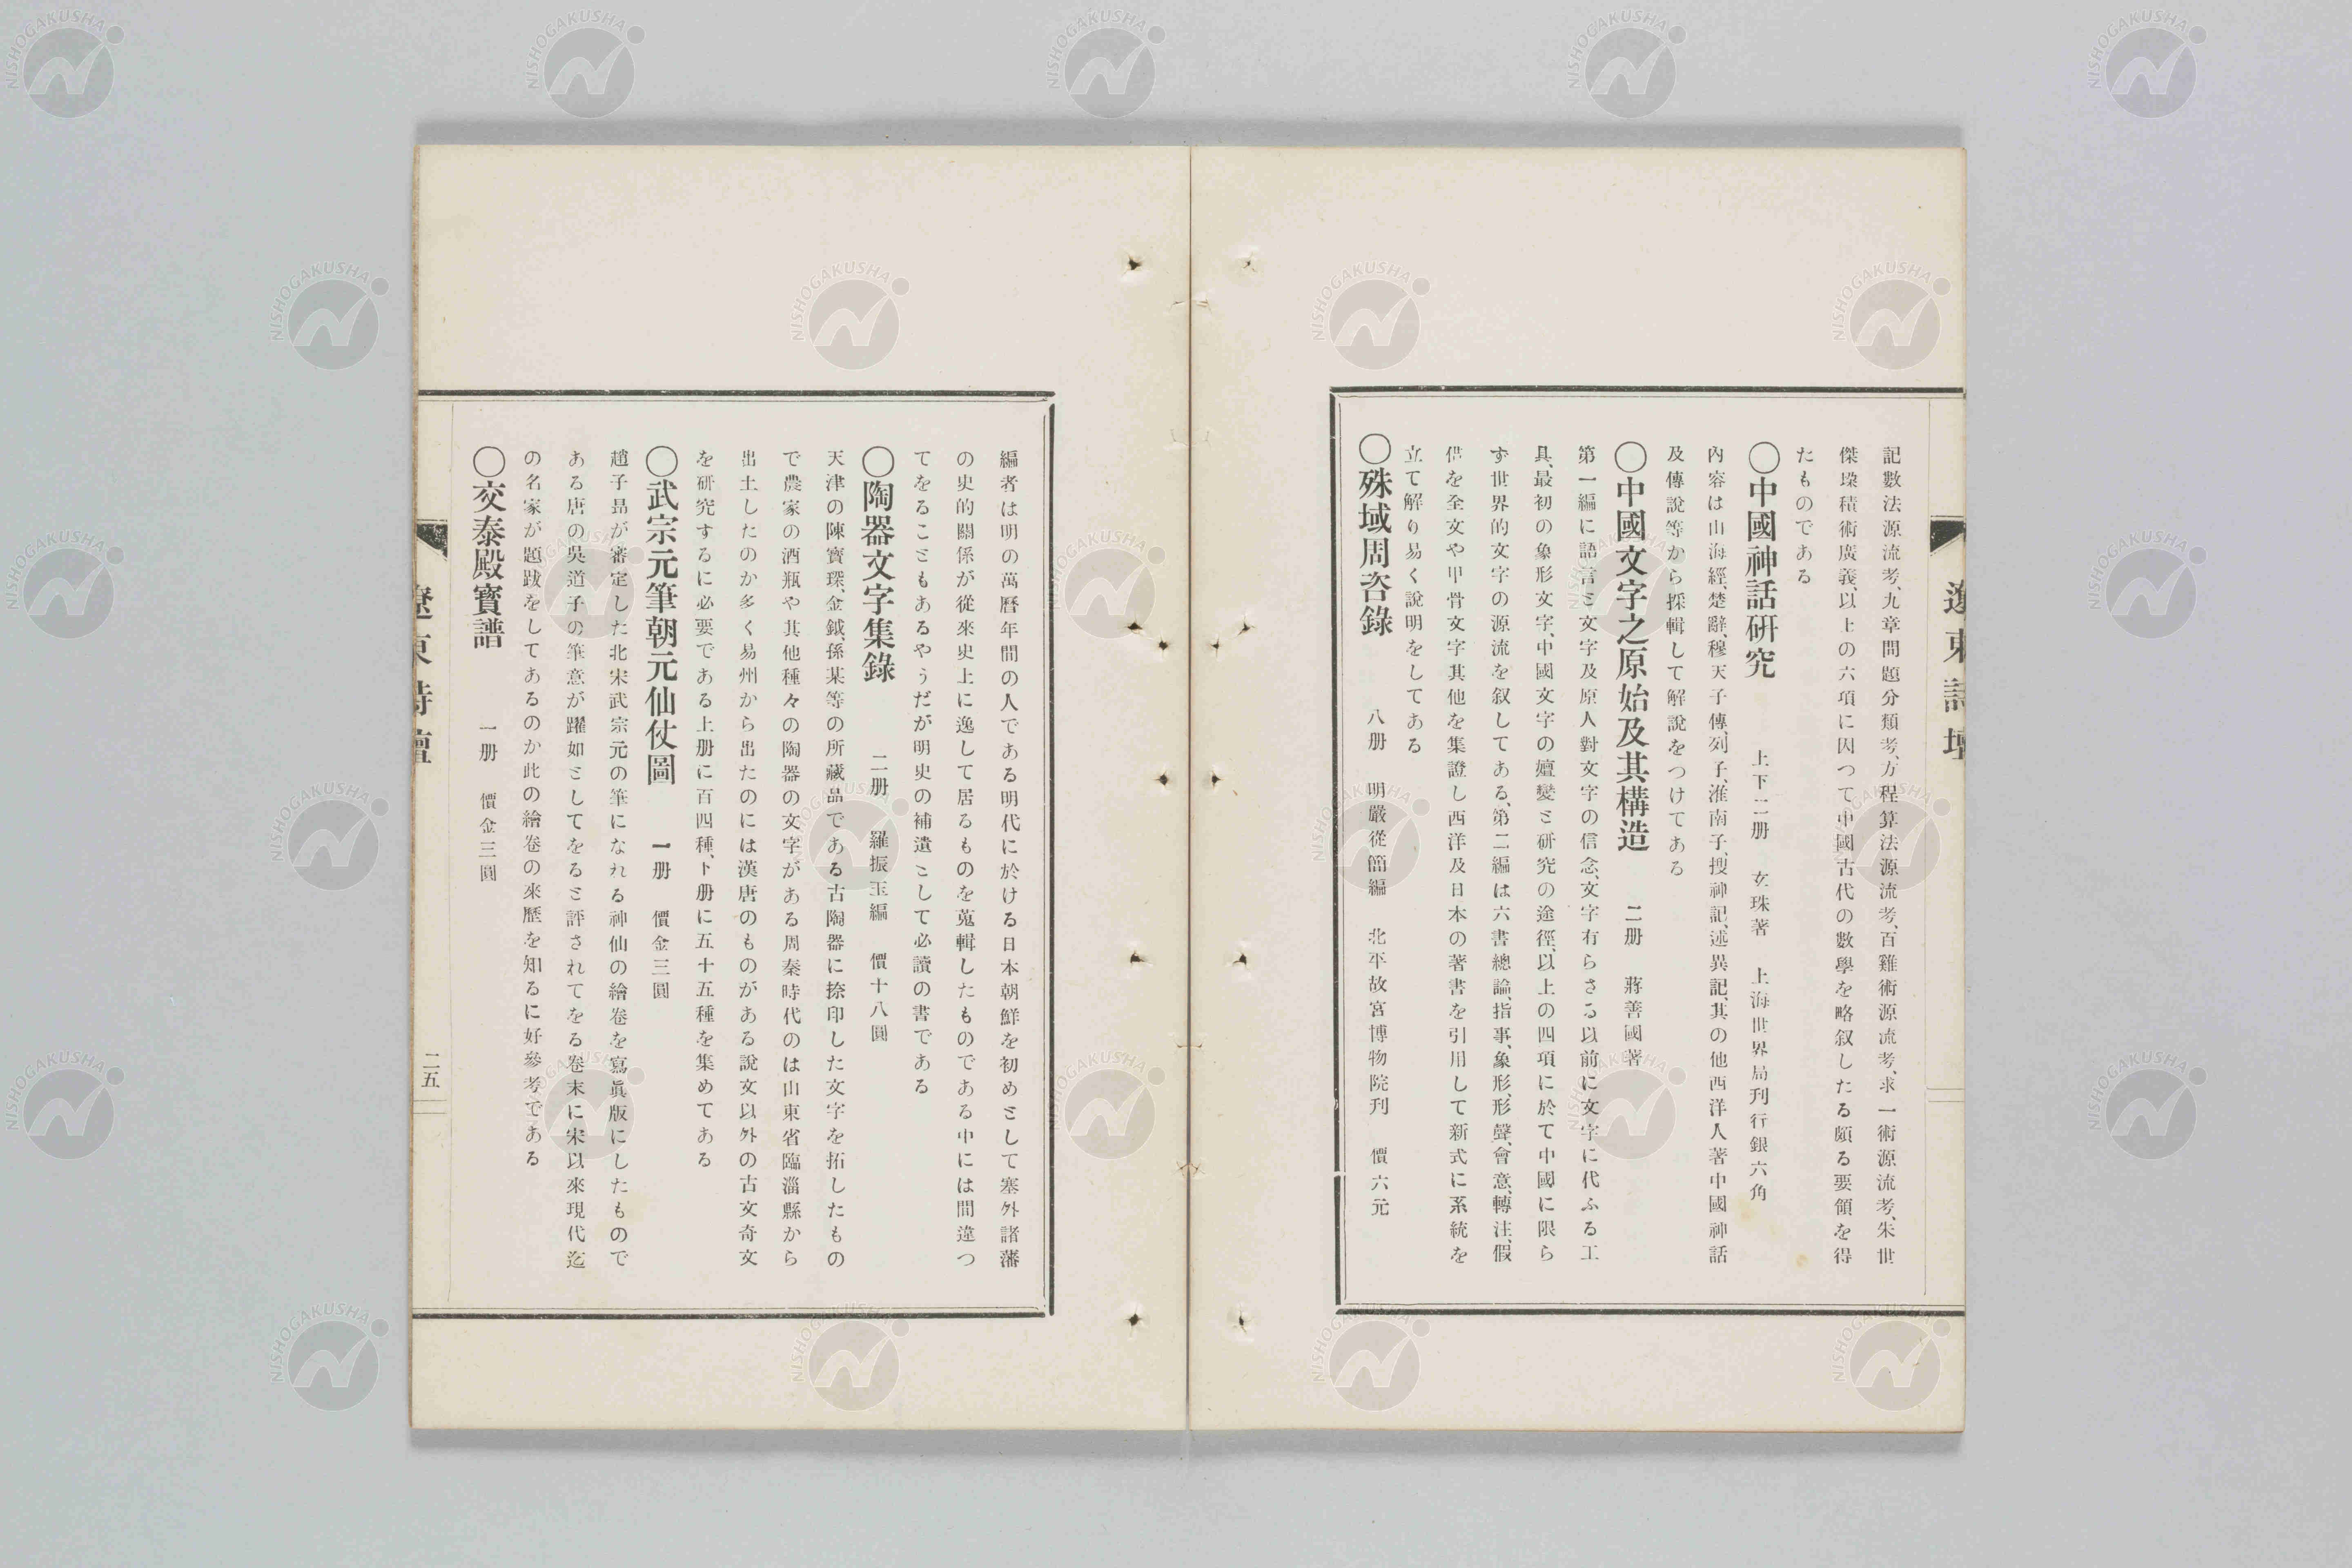 遼東詩壇
記數法源流考、九章問題分類考、方程算法源流考、百雞術源流考、求一術源流考、朱世
傑垜積術廣義、以上の六項に因つて中國古代の數學を略叙したる頗る要領を得
たものである
○中國神話研究 上下二册 玄珠著 上海世界局刊行銀六角
內容は山海經、楚辭、穆天子傳、列子、淮南子、搜神記、述異記、其の他西洋人著中國神話
及傳說等から採輯して解說をつけてある
○中國文字之原始及其構造 二册 蔣善國著
第一編に語言ミ文字及原人對文字の信念、文字有らさる以前に文字に代ふる工
具、最初の象形文字、中國文字の嬗變ミ研究の途徑、以上の四項に於て中國に限ら
ず世界的文字の源流を叙してある、第二編は六書總論、指事、象形、形聲、會意、轉注、假
借を全文や甲骨文字其他を集證し西洋及日本の著書を引用して新式に系統を
立て解り易く說明をしてある
○殊域周咨錄 八册 明嚴從簡編 北平故宮博物院刊 價六元
編者は明の萬曆年間の人である明代に於ける日本朝鮮を初めミして塞外諸藩
の史的關係が從來史上に逸して居るものを蒐輯したものである中には間違つ
てをるこミもあるやうだが明史の補遺ミして必讀の書である
○陶器文字集錄 二册 羅振玉編 價十八圓
天津の陳寶琛、金鉞、孫某等の所藏品である古陶器に捺印した文字を拓したもの
で農家の酒瓶や其他種々の陶器の文字がある周秦時代のは山東省臨淄縣から
出土したのか多く易州から出たのには漢唐のものがある說文以外の古文奇文
を研究するに必要である上册に百四種、下册に五十五種を集めてある
○武宗元筆朝元仙仗圖 一册 價金三圓
趙子昻が審定した北宋武宗元の筆になれる神仙の繪卷を寫眞版にしたもので
ある唐の吳道子の筆意が躍如ミしてをるミ評されてをる卷末に宋以來現代迄
の名家が題跋をしてあるのか此の繪卷の來歷を知るに好參考である
○交泰殿寶譜 一册 價金三圓
遼東詩壇
二五